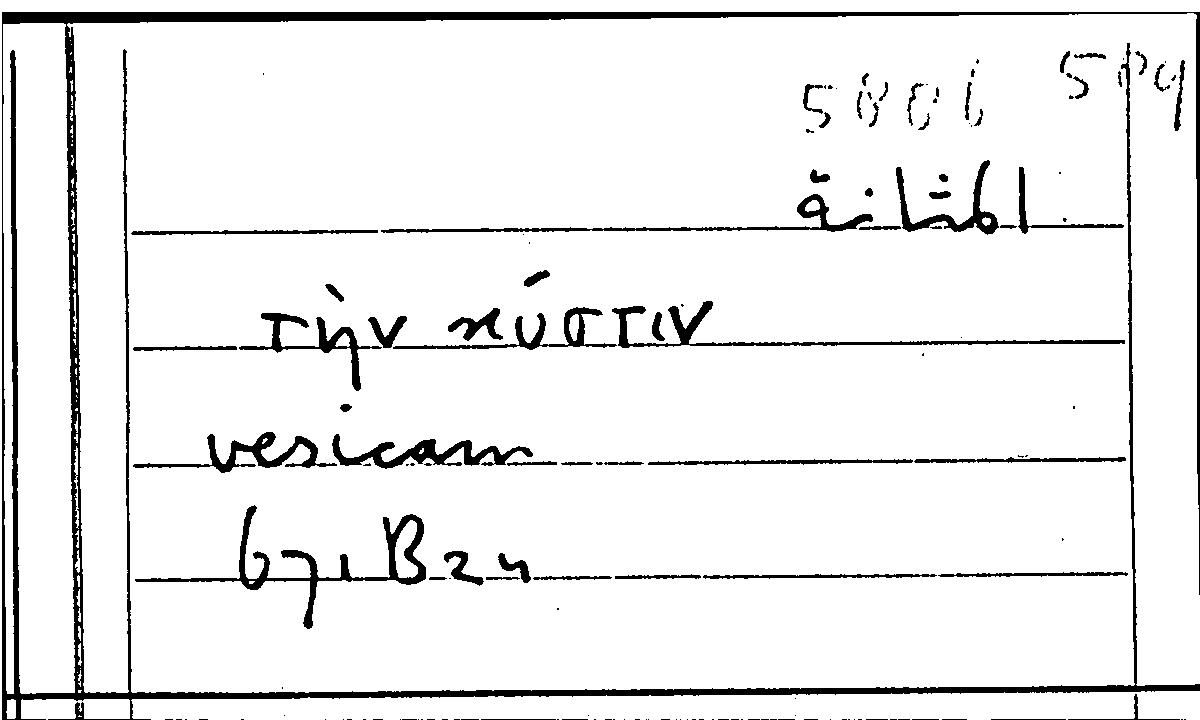 المثانة
τὴν κύστιν
vesicam
671 B 24